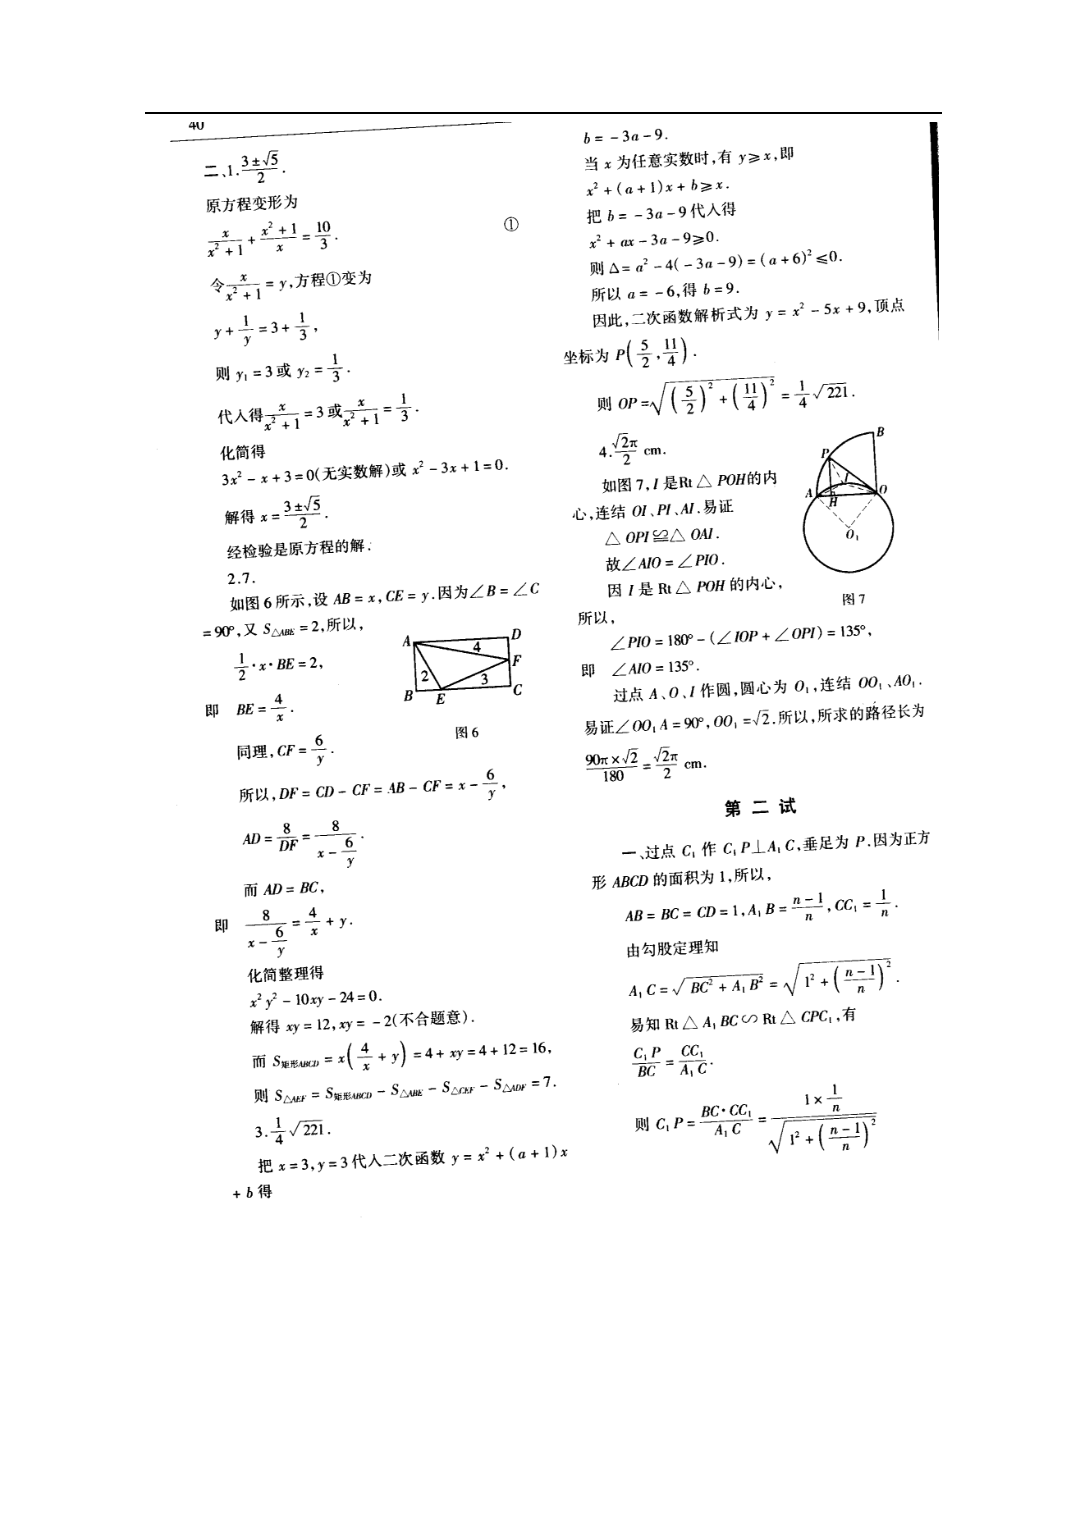 40
二、1.(3±√5)/2.
原方程变形为
x/(x²+1)+(x²+1)/x=10/3. ①
令x/(x²+1)=y,方程①变为
y+1/y=3+1/3,
则 y₁=3或 y₂=1/3.
代入得x/(x²+1)=3或x/(x²+1)=1/3.
化简得
3x²-x+3=0(无实数解)或 x²-3x+1=0.
解得 x=(3±√5)/2.
经检验是原方程的解.
2.7.
如图6所示,设 AB=x,CE=y.因为∠B=∠C
=90°,又 S△ABE=2,所以,
1/2·x·BE=2,
即 BE=4/x.
同理,CF=6/y.
A D 4 F 2 3 B E C
图6
所以,DF=CD-CF=AB-CF=x-6/y,
AD=8/DF=8/(x-6/y).
而 AD=BC,
即 8/(x-6/y)=4/x+y.
化简整理得
x²y²-10xy-24=0.
解得 xy=12,xy=-2(不合题意).
而 S矩形ABCD=x(4/x+y)=4+xy=4+12=16,
则 S△AEF=S矩形ABCD-S△ABE-S△CEF-S△ADF=7.
3.1/4√221.
把 x=3,y=3代人二次函数 y=x²+(a+1)x
+b 得
b=-3a-9.
当 x 为任意实数时,有 y≥x,即
x²+(a+1)x+b≥x.
把 b=-3a-9代人得
x²+ax-3a-9≥0.
则 △=a²-4(-3a-9)=(a+6)²≤0.
所以 a=-6,得 b=9.
因此,二次函数解析式为 y=x²-5x+9,顶点
坐标为 P(5/2,11/4).
则 OP=√((5/2)²+(11/4)²)=1/4√221.
4.√2π/2 cm.
如图7,I 是Rt△POH的内
心,连结 OI、PI、AI.易证
△OPI≌△OAI.
故∠AIO=∠PIO.
因 I 是 Rt△POH 的内心,
所以,
B P I A H O O₁
图7
∠PIO=180°-(∠IOP+∠OPI)=135°,
即 ∠AIO=135°.
过点 A、O、I 作圆,圆心为 O₁,连结 OO₁、AO₁.
易证∠OO₁A=90°,OO₁=√2.所以,所求的路径长为
(90π×√2)/180=√2π/2 cm.
第二试
一、过点 C₁ 作 C₁P⊥A₁C,垂足为 P.因为正方
形 ABCD 的面积为1,所以,
AB=BC=CD=1,A₁B=(n-1)/n,CC₁=1/n.
由勾股定理知
A₁C=√(BC²+A₁B²)=√(1²+((n-1)/n)²).
易知 Rt△A₁BC∽Rt△CPC₁,有
C₁P/BC=CC₁/A₁C.
则 C₁P=BC·CC₁/A₁C=(1×1/n)/√(1²+((n-1)/n)²)